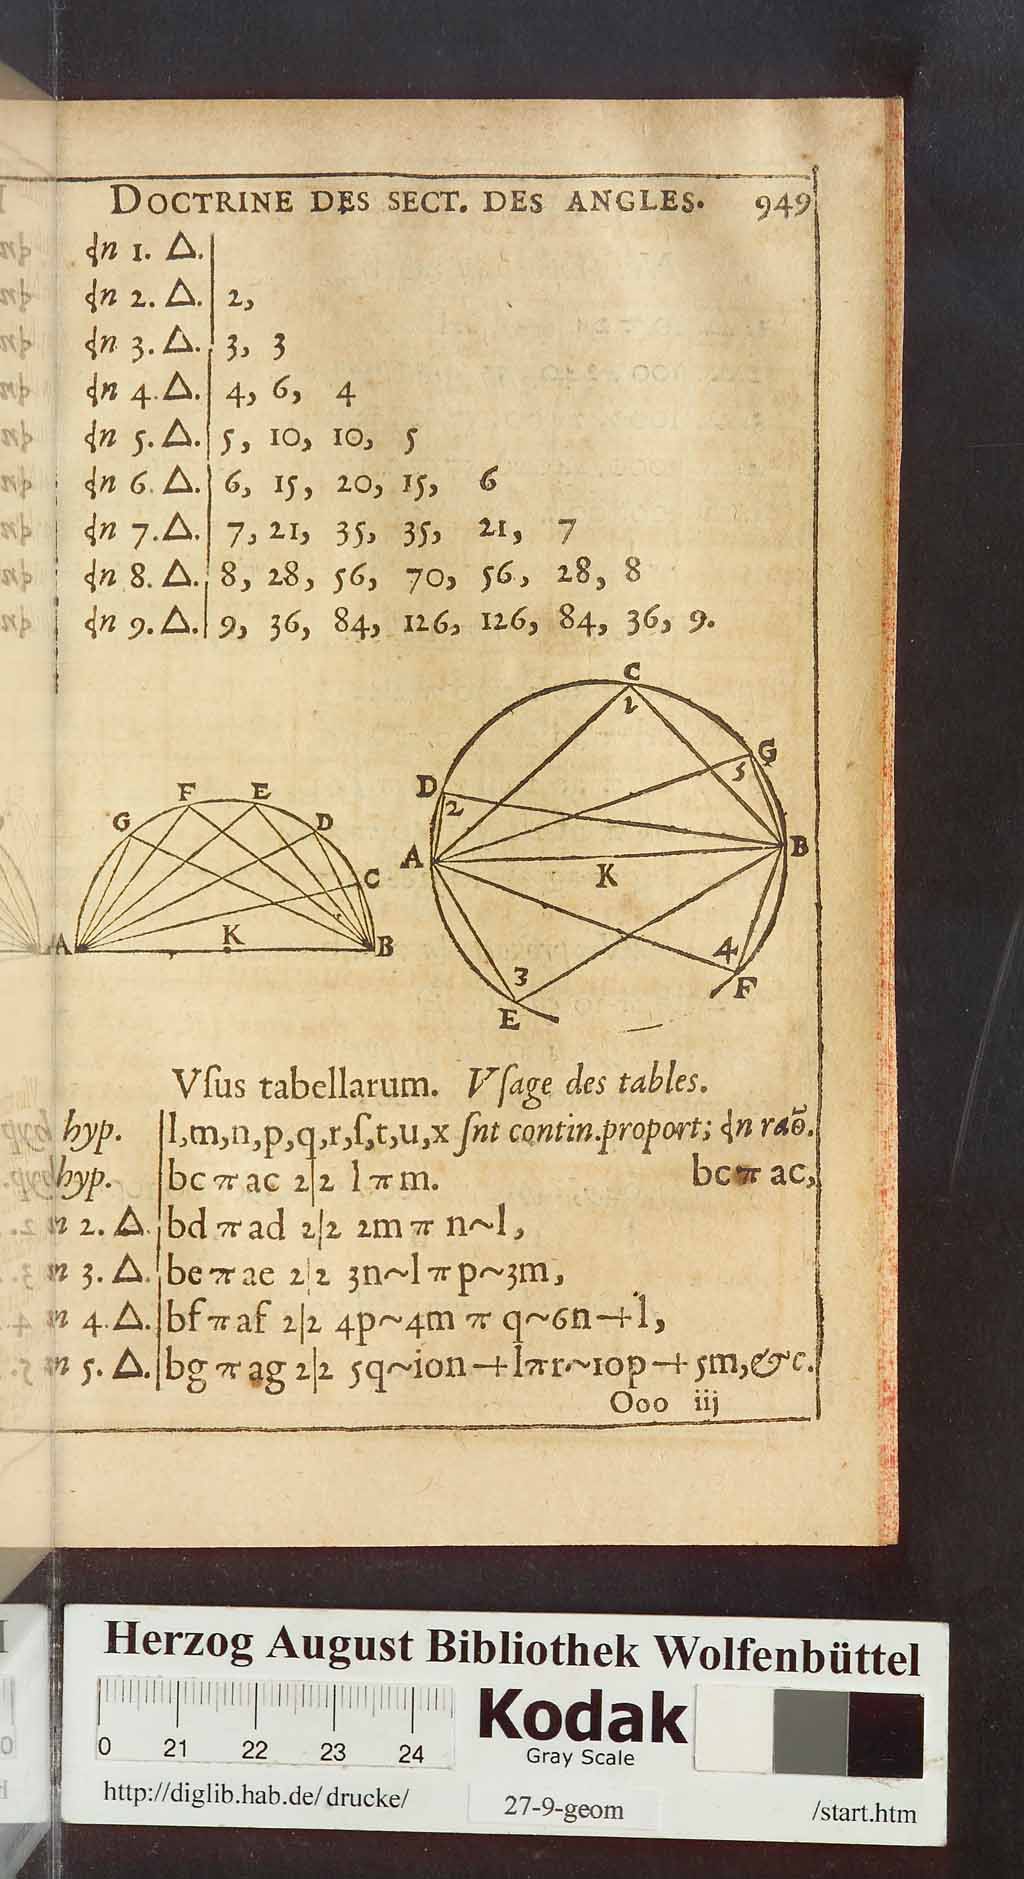 DOCTRINE DES SECT. DES ANGLES. 949
ꝗn 1. △.
ꝗn 2. △. 2,
ꝗn 3. △. 3, 3
ꝗn 4. △. 4, 6, 4
ꝗn 5. △. 5, 10, 10, 5
ꝗn 6. △. 6, 15, 20, 15, 6
ꝗn 7. △. 7, 21, 35, 35, 21, 7
ꝗn 8. △. 8, 28, 56, 70, 56, 28, 8
ꝗn 9. △. 9, 36, 84, 126, 126, 84, 36, 9.
A G F E D C B K
A D C G B F E K 1 2 3 4 5
Vſus tabellarum. Vſage des tables.
hyp. l,m,n,p,q,r,ſ,t,u,x ſnt contin.proport; ꝗn raõ.
hyp. bc π ac 2|2 l π m. bc π ac,
n 2. △. bd π ad 2|2 2m π n~l,
n 3. △. be π ae 2|2 3n~l π p~3m,
n 4. △. bf π af 2|2 4p~4m π q~6n+l,
n 5. △. bg π ag 2|2 5q~ion+lπr~10p+5m,&c.
Ooo iij
Herzog August Bibliothek Wolfenbüttel
0 21 22 23 24
Kodak
Gray Scale
http://diglib.hab.de/drucke/ 27-9-geom /start.htm